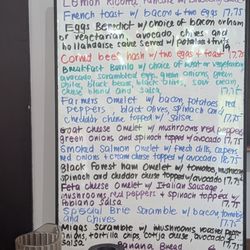 Lemon Ricotta Pancake w/ Blueberry
French toast w/ bacon & two eggs 17.75
Eggs Benedict w/ choice of bacon
or vegetarian, avocado, chives and
hollandaise sauce served w/ potatoes & fruit
Corned beef hash w/ two eggs & toast 17.75
Breakfast Burrito w/ choice of meat or vegetarian
avocado, scrambled eggs, green onions, green
chiles, black beans, black olives, sour cream,
cheese blend and salsa 17.75
Farmers Omelet w/ bacon, potatoes, red
peppers, black olives, spinach and
cheddar cheese topped w/ salsa 17.75
Goat Cheese Omelet w/ mushrooms, red peppers,
green onions and spinach topped w/ avocado 17.75
Smoked Salmon Omelet w/ fresh dill, capers,
red onions & cream cheese topped w/ avocado
Black Forest Ham Omelet w/ tomatoes, mushrooms,
spinach and cheddar cheese topped w/ avocado
Feta Cheese Omelet w/ Italian Sausage,
mushrooms, red peppers & spinach topped w/
Salsa 17.75
Special Brie Scramble w/ bacon, tomatoes
and Chives 17.75
Migas Scramble w/ Mushrooms, roasted
tortilla chips, cheese,
Banana Bread